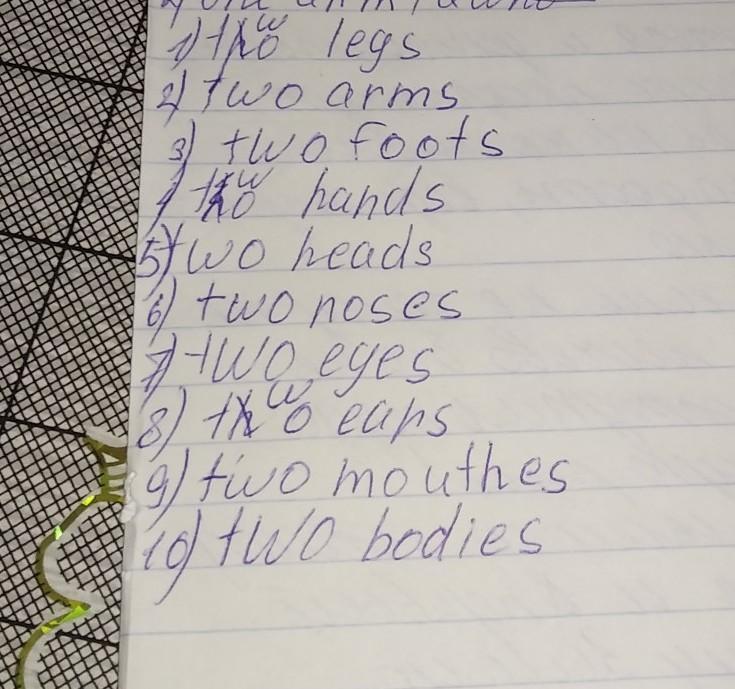 1) two legs
2) two arms
3) two foots
4) two hands
5) two heads
6) two noses
7) two eyes
8) two ears
9) two mouthes
10) two bodies